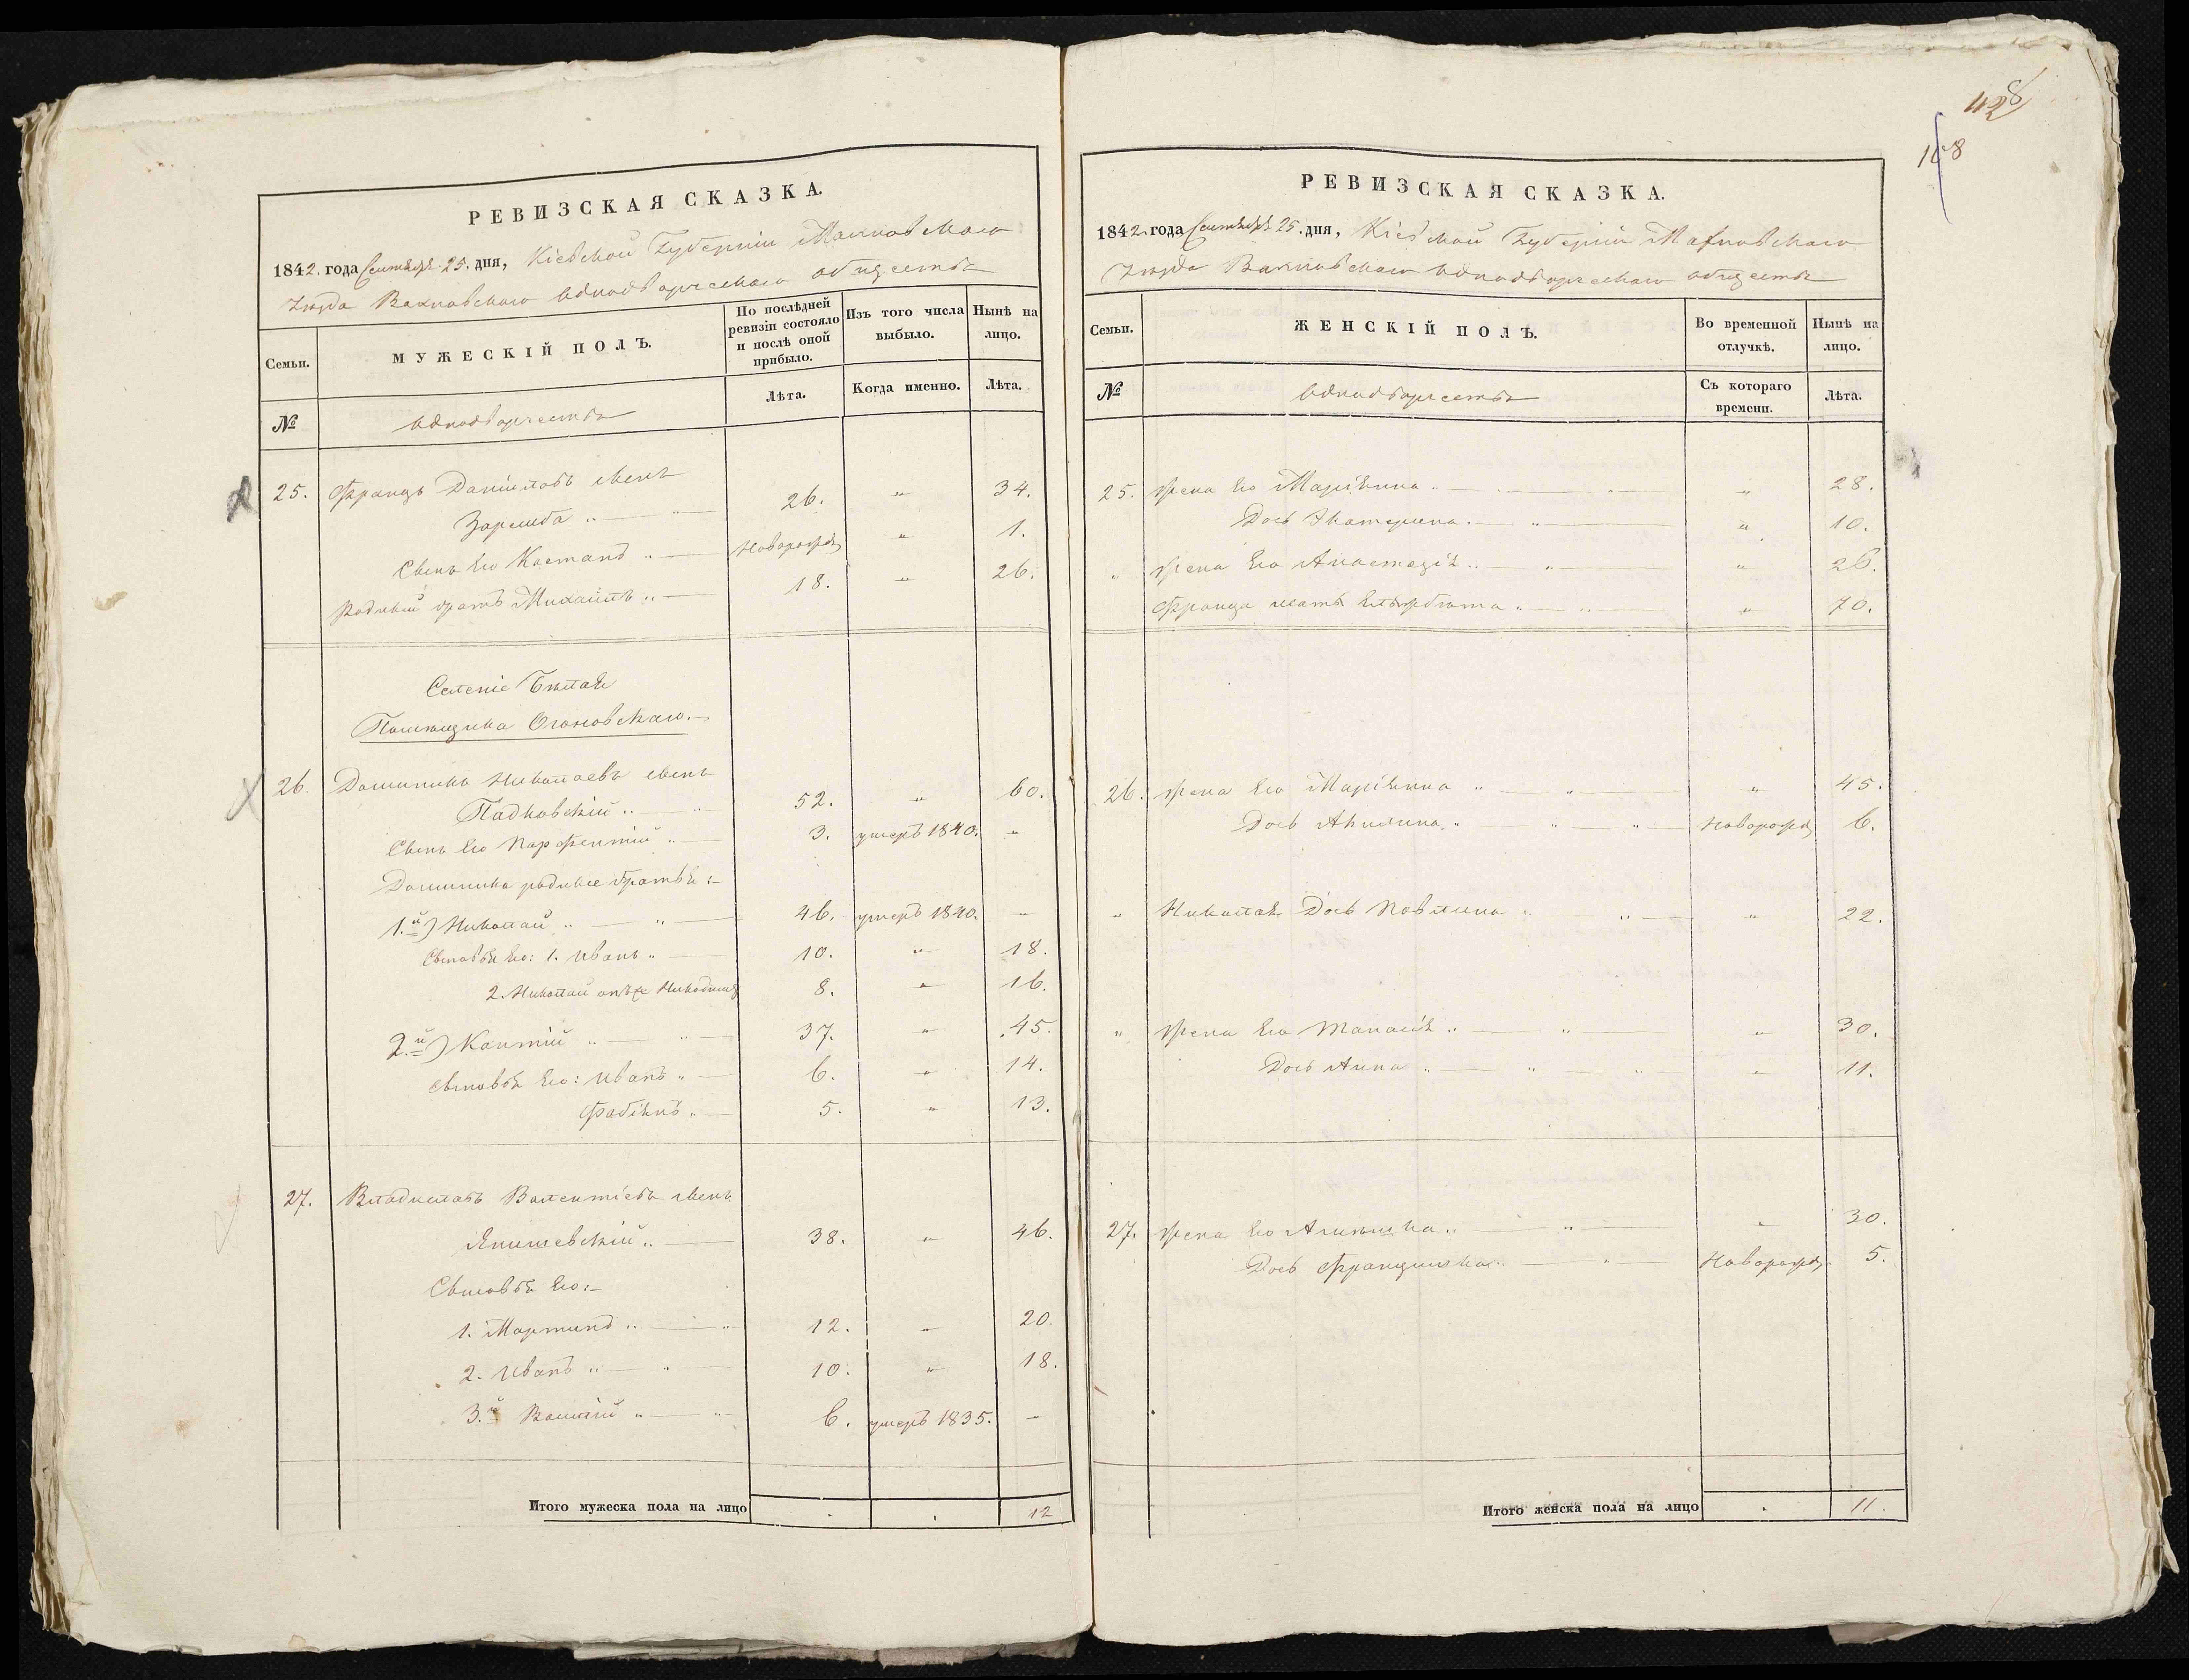 РЕВИЗСКАЯ СКАЗКА.
1842. года Сентября 25. дня, Кіевской Губерніи Махновскаго
уѣзда Вахновскаго однодворческаго общества
Семьи. МУЖЕСКІЙ ПОЛЪ. По послѣдней ревизіи состояло и послѣ оной прибыло. Изъ того числа выбыло. Нынѣ на лицо.
№ однодворчества Лѣта. Когда именно. Лѣта.
25. Францъ Даніиловъ сынъ
Заремба „ 26. „ 34.
Сынъ его „ Новорожд „ 1.
Родный братъ Михаилъ „ 18. „ 26.
Селеніе Бѣлая
Помѣщика
26. Доминикъ Николаевъ сынъ
Падковскій „ 52. „ 60.
Сынъ его Парфентій „ 3. умеръ 1840. „
Доминика родные братья:
1.й) Николай „ 46. умеръ 1840. „
Сыновья его: 1. Иванъ „ 10. „ 18.
2. Николай онъ же Никодимъ 8. „ 16.
2.й) „ 37. „ 45.
Сыновья его: Иванъ „ 6. „ 14.
Фабіянъ „ 5. „ 13.
27. Владиславъ Валентіевъ сынъ
Янишевскій „ 38. „ 46.
Сыновья его:
1. Мартинъ „ 12. „ 20.
2. Иванъ „ 10. „ 18.
3.й „ 6. умеръ 1835. „
Итого мужеска пола на лицо 12
428
168
РЕВИЗСКАЯ СКАЗКА.
1842. года Сентября 25. дня, Кіевской Губерніи Махновскаго
уѣзда Вахновскаго однодворческаго общества
Семьи. ЖЕНСКІЙ ПОЛЪ. Во временной отлучкѣ. Нынѣ на лицо.
№ однодворчества Съ котораго времени. Лѣта.
25. Жена его Маріянна „ „ 28.
Дочь Екатерина „ „ 10.
„ Жена его Анастазія „ „ 26.
Франца мать Елѣжбѣта „ „ 70.
26. Жена его Маріянна „ „ 45.
Дочь Акилина „ Новорожд 6.
„ Николая Дочь Павлина „ „ 22.
„ Жена его „ „ 30.
Дочь Анна „ „ 11.
27. Жена его „ „ 30.
Дочь Францишка „ Новорожд 5.
Итого женска пола на лицо 11.